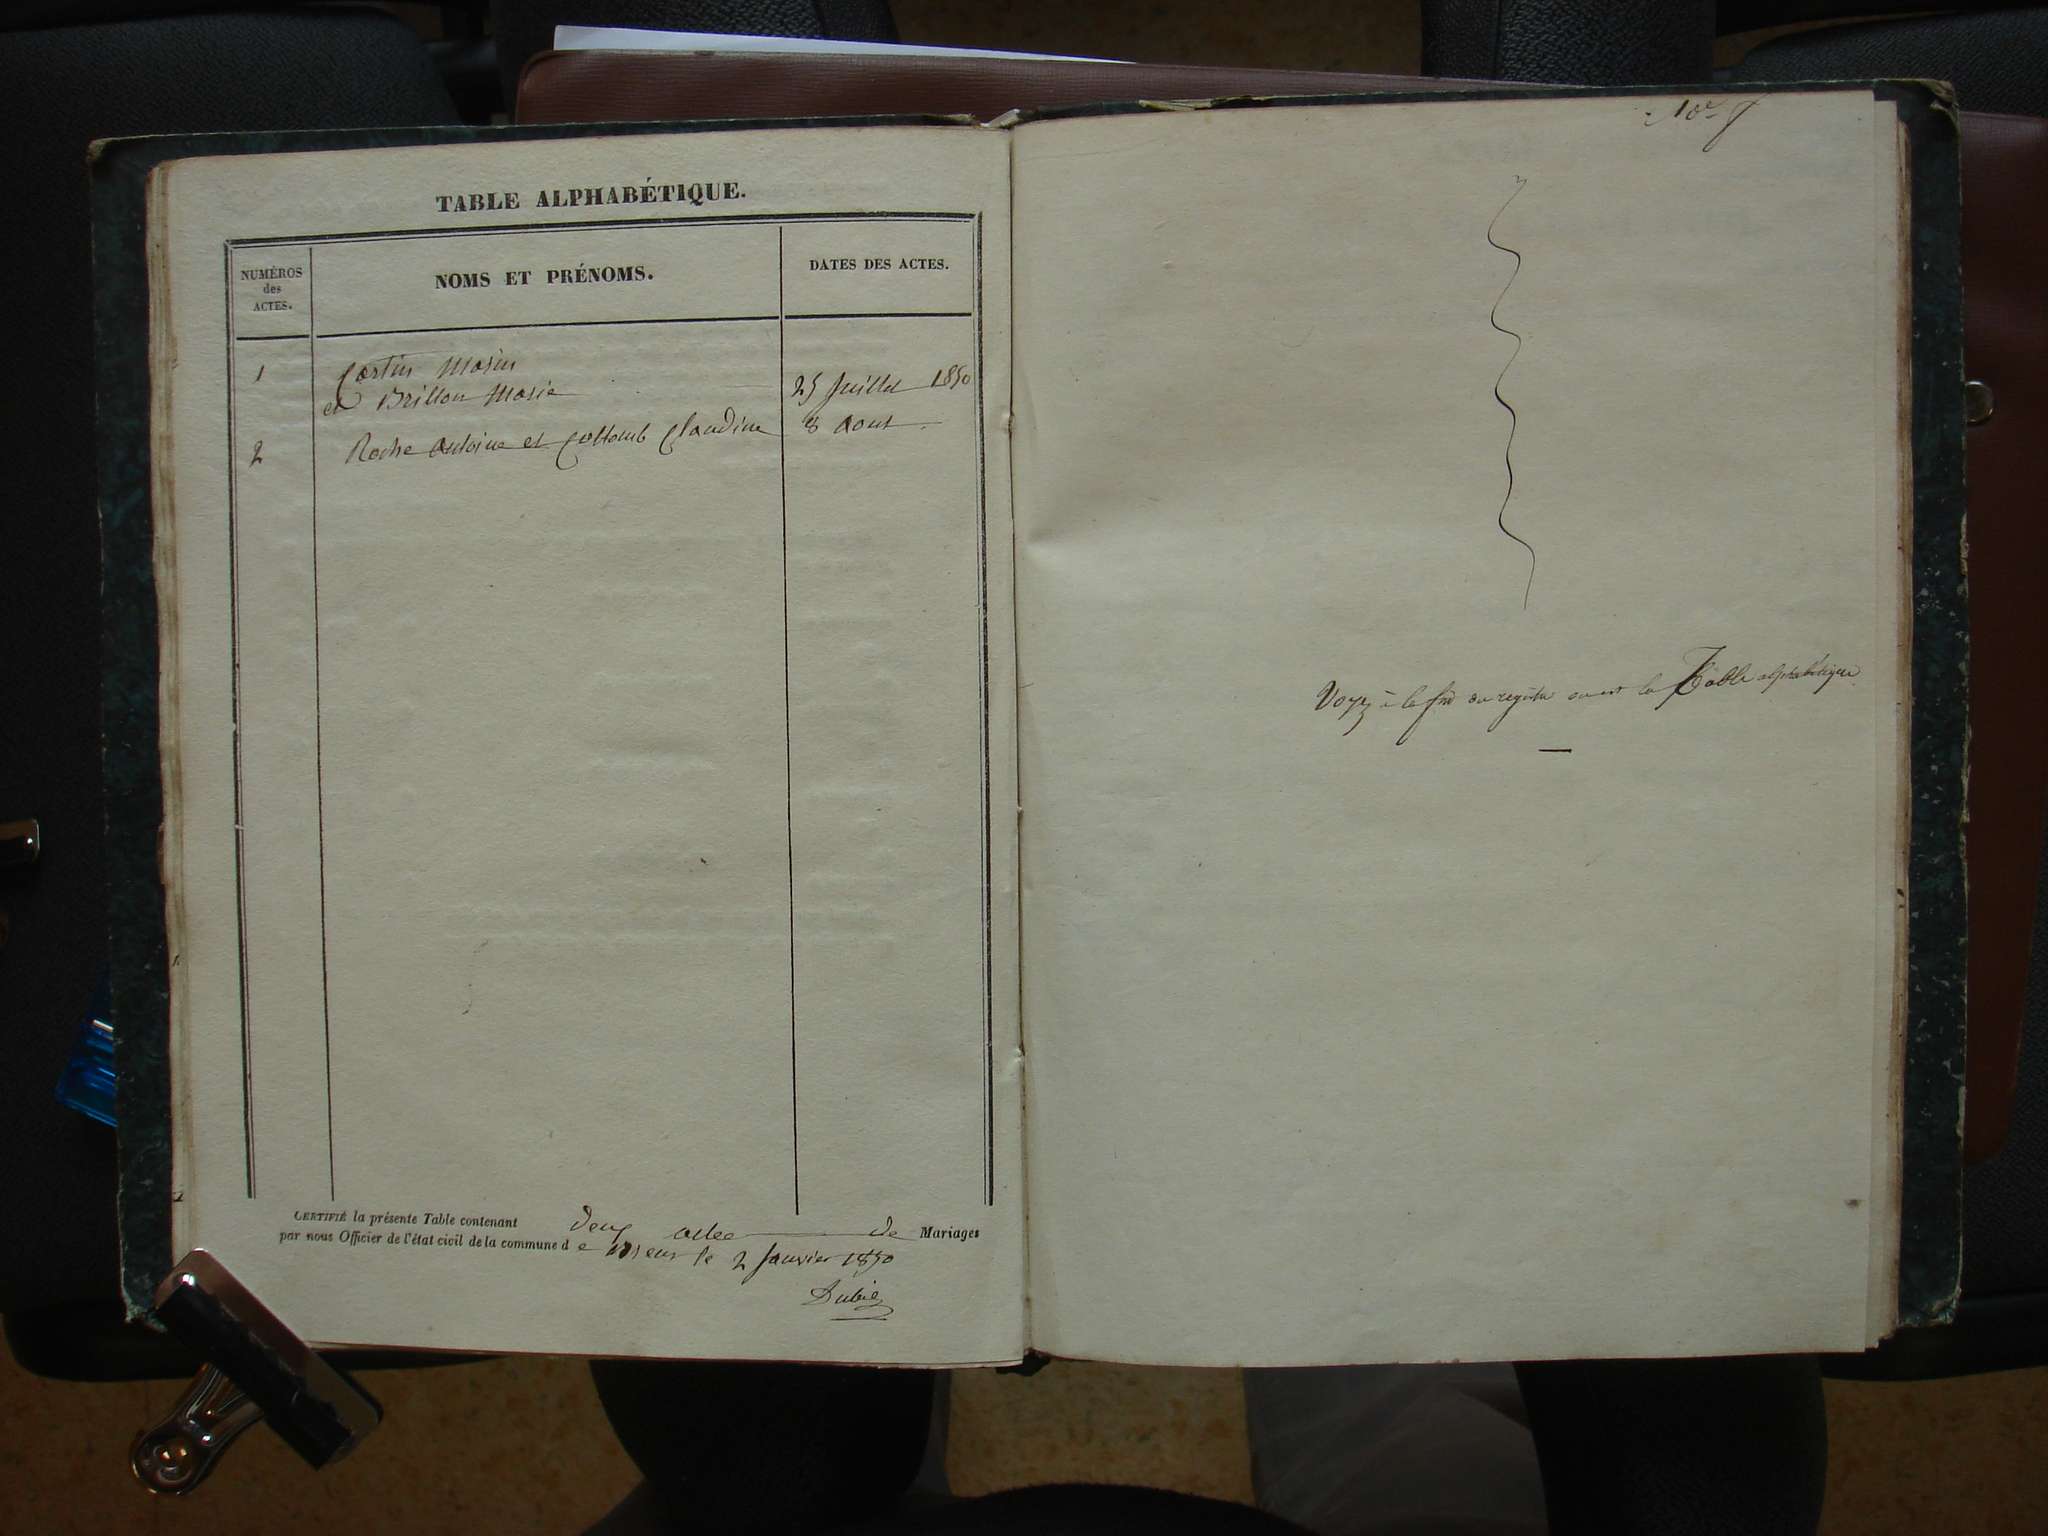 TABLE ALPHABÉTIQUE.
NUMÉROS
des
ACTES.
NOMS ET PRÉNOMS.
DATES DES ACTES.
1
Marin
et Brillon Marie
25 Juillet 1850
2
Roche Antoine et Collomb Claudine
8 Aout
CERTIFIÉ la présente Table contenant deux actes de Mariages
par nous Officier de l'état civil de la commune de le 2 Janvier 1850
10e
Voyez à la fin du registre ou est la Table alphabétique